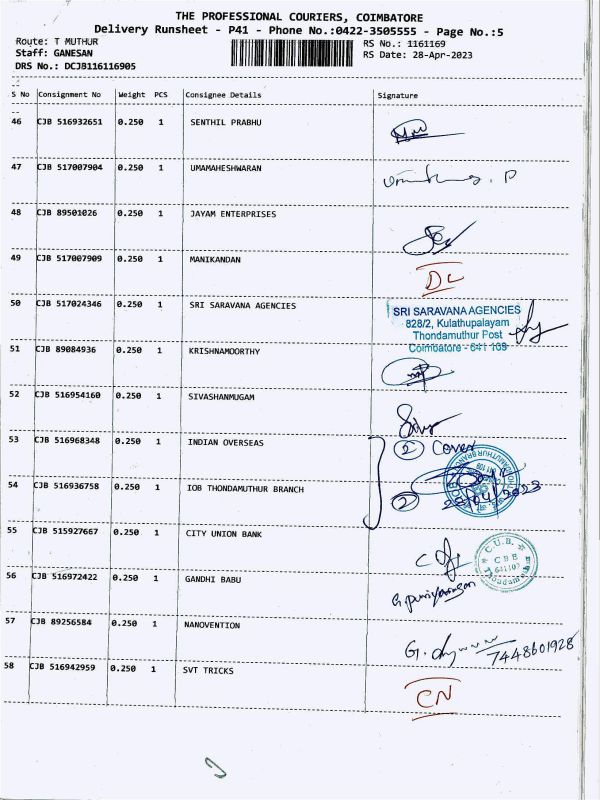 THE PROFESSIONAL COURIERS, COIMBATORE
Delivery Runsheet - P41 - Phone No.:0422-3505555 - Page No.:5
Route: T MUTHUR
RS No.: 1161169
Staff: GANESAN
RS Date: 28-Apr-2023
DRS No.: DCJB116116905
S No Consignment No Weight PCS Consignee Details Signature
46 CJB 516932651 0.250 1 SENTHIL PRABHU
47 CJB 517007904 0.250 1 UMAMAHESHWARAN
48 CJB 89501026 0.250 1 JAYAM ENTERPRISES
49 CJB 517007909 0.250 1 MANIKANDAN
DL
50 CJB 517024346 0.250 1 SRI SARAVANA AGENCIES
SRI SARAVANA AGENCIES
828/2, Kulathupalayam
Thondamuthur Post
Coimbatore - 641 109
51 CJB 89084936 0.250 1 KRISHNAMOORTHY
52 CJB 516954160 0.250 1 SIVASHANMUGAM
Siva
53 CJB 516968348 0.250 1 INDIAN OVERSEAS
2 Cover
54 CJB 516936758 0.250 1 IOB THONDAMUTHUR BRANCH
2 28/04/2023
55 CJB 515927667 0.250 1 CITY UNION BANK
C.U.B.
CBB
641109
Thondamuthur
56 CJB 516972422 0.250 1 GANDHI BABU
57 CJB 89256584 0.250 1 NANOVENTION
7448601928
58 CJB 516942959 0.250 1 SVT TRICKS
CN